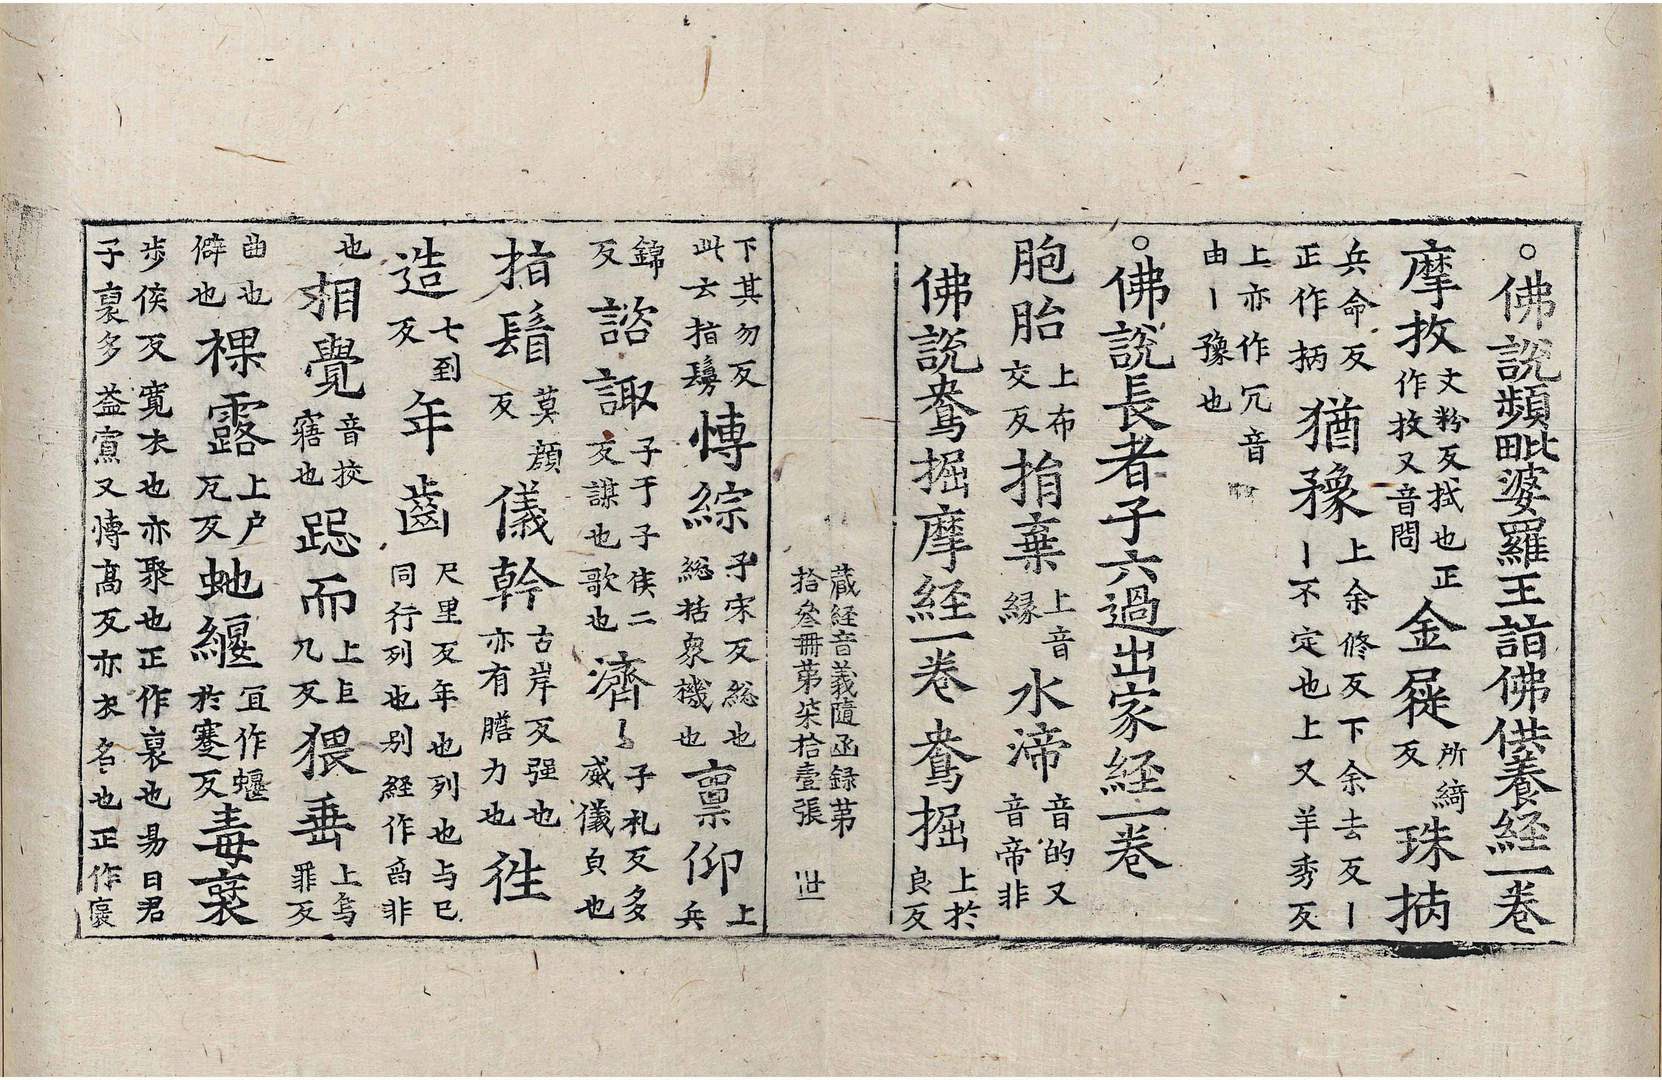 。佛說頻毗婆羅王詣佛供養経一卷
摩抆文粉反拭也正作抆又音問金屣所綺反珠抦
兵命反正作柄猶豫上余修反下余去反丨丨不定也上又羊秀反
上亦作冘音由丨豫也
。佛說長者子六過出家経一卷
胞胎上布交反捐棄上音縁水渧音的又音帝非
佛說鴦掘摩経一卷鴦掘上於良反
藏経音義隨函録苐
拾叄冊苐柒拾壹張 世
下其勿反此云指鬘慱綜子宋反総也総括衆機也禀仰上兵
錦反諮諏子于子侯二反謀也歌也濟〻子礼反多威儀皃也
指鬘莫顔反儀幹古岸反强也亦有膳力也徃
造七到反年齒尺里反年也列也与巳同行列也别経作啇非
也相覺音挍寤也跽而上巨几反猥垂上烏罪反
曲也僻也裸露上户瓦反虵纒冝作蝘於蹇反毒褱
歩侯反寛衣也亦聚也正作裒也易曰君子裒多益寡又慱髙反亦衣名也正作襃